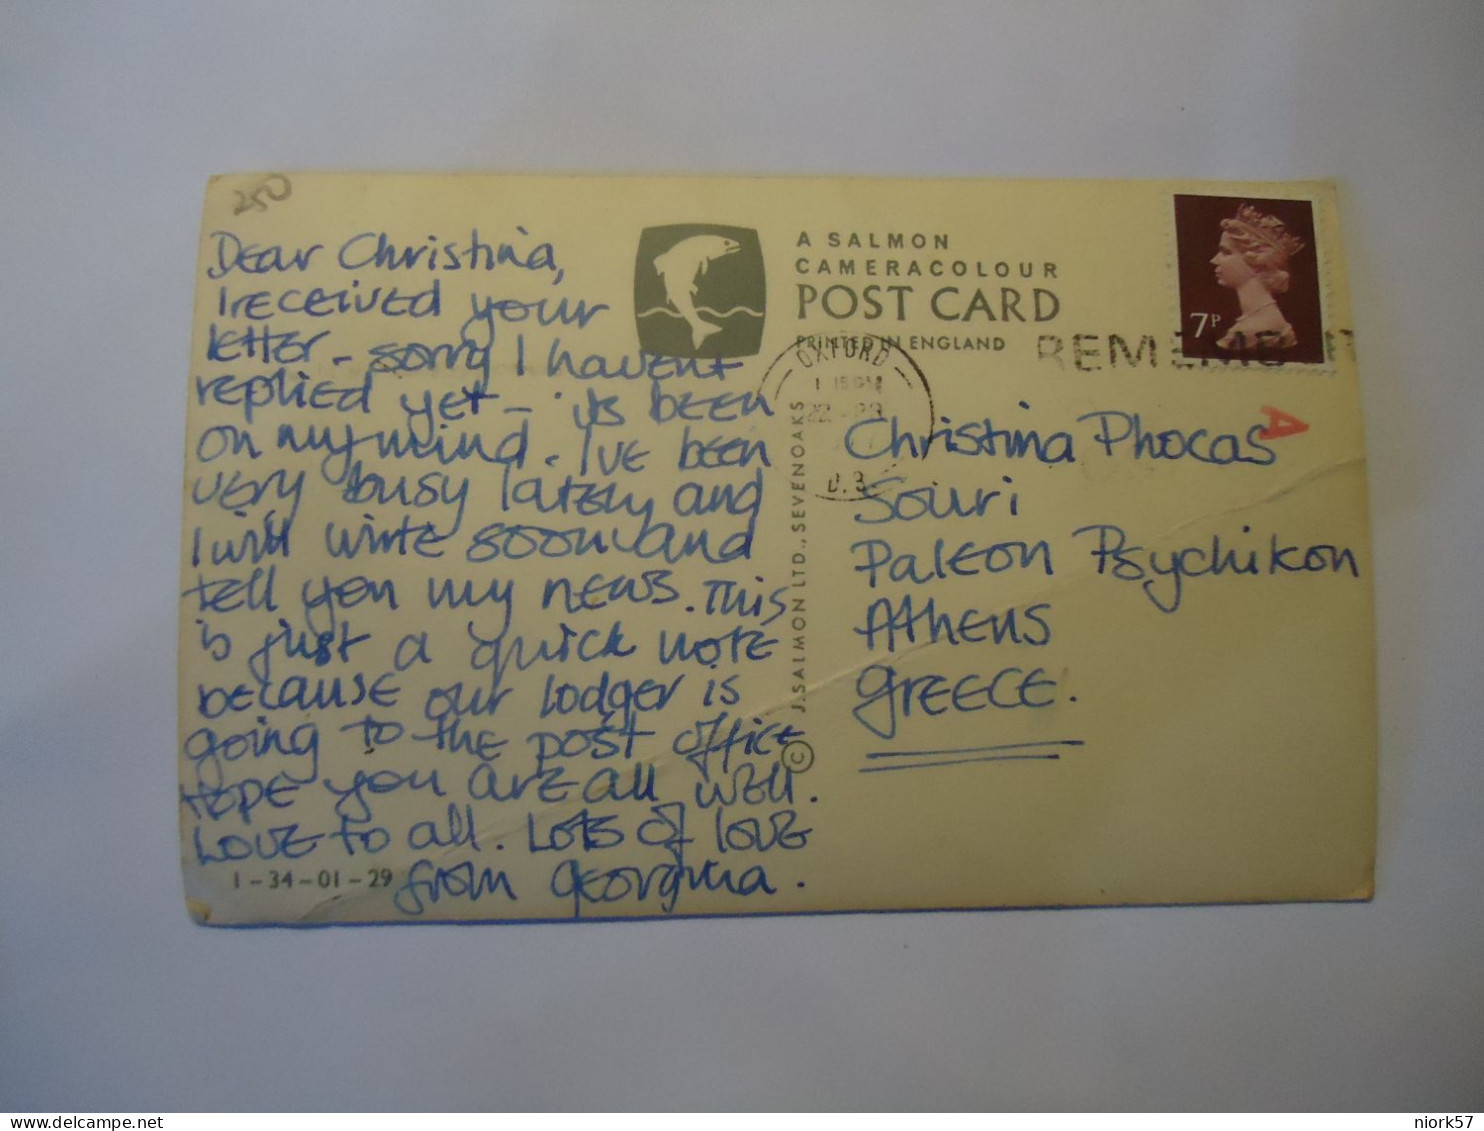 250
Dear Christina,
I received your
letter - sorry I haven't
replied yet - its been
on my mind. I've been
very busy lately and
I will write soon and
tell you my news. This
is just a quick note
because our lodger is
going to the post office
Hope you are all well.
Love to all. Lots of love
from Georgina.
1-34-01-29
A SALMON
CAMERACOLOUR
POST CARD
PRINTED IN ENGLAND
© J. SALMON LTD., SEVENOAKS
OXFORD
7P
REMEMB
A
Christina Phocas
Souri
Paleon Psychikon
Athens
Greece.
niork57